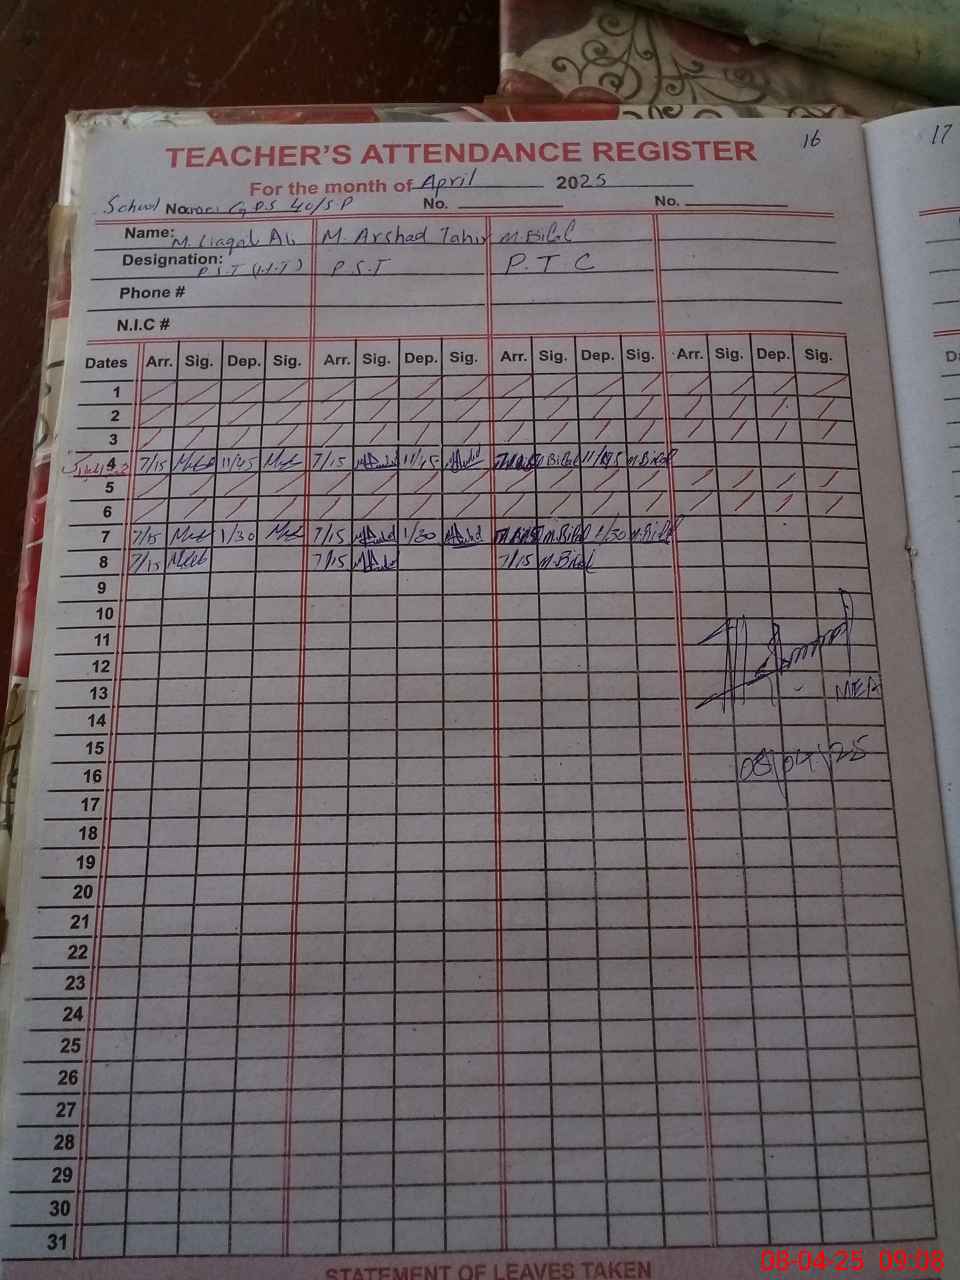 16
17
TEACHER'S ATTENDANCE REGISTER
For the month of April 2025
School Name: G.P.S 40/S.P No. No.
Name: M. Liaqat Ali M. Arshad Tahir M. Bilal
Designation: P.S.T (H.T) P.S.T P.T.C
Phone #
N.I.C #
Dates Arr. Sig. Dep. Sig. Arr. Sig. Dep. Sig. Arr. Sig. Dep. Sig. Arr. Sig. Dep. Sig.
1
2
3
4 7/15 11/45 7/15 11/45 M.Bilal 11/45 M.Bilal
5
6
7 7/15 1/30 7/15 1/30 M.Bilal 1/30 M.Bilal
8 7/15 7/15 7/15 M.Bilal
9
10
11
12
13 MEA
14
15
16 08/04/25
17
18
19
20
21
22
23
24
25
26
27
28
29
30
31
STATEMENT OF LEAVES TAKEN
08-04-25 09:08